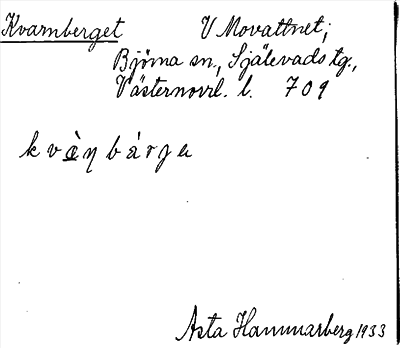 Kvarnberget V Movattnet;
Björna sn., Själevads tg.,
Västernorrl. l. 709
kvàṇbárjɐ
Asta Hammarberg 1933